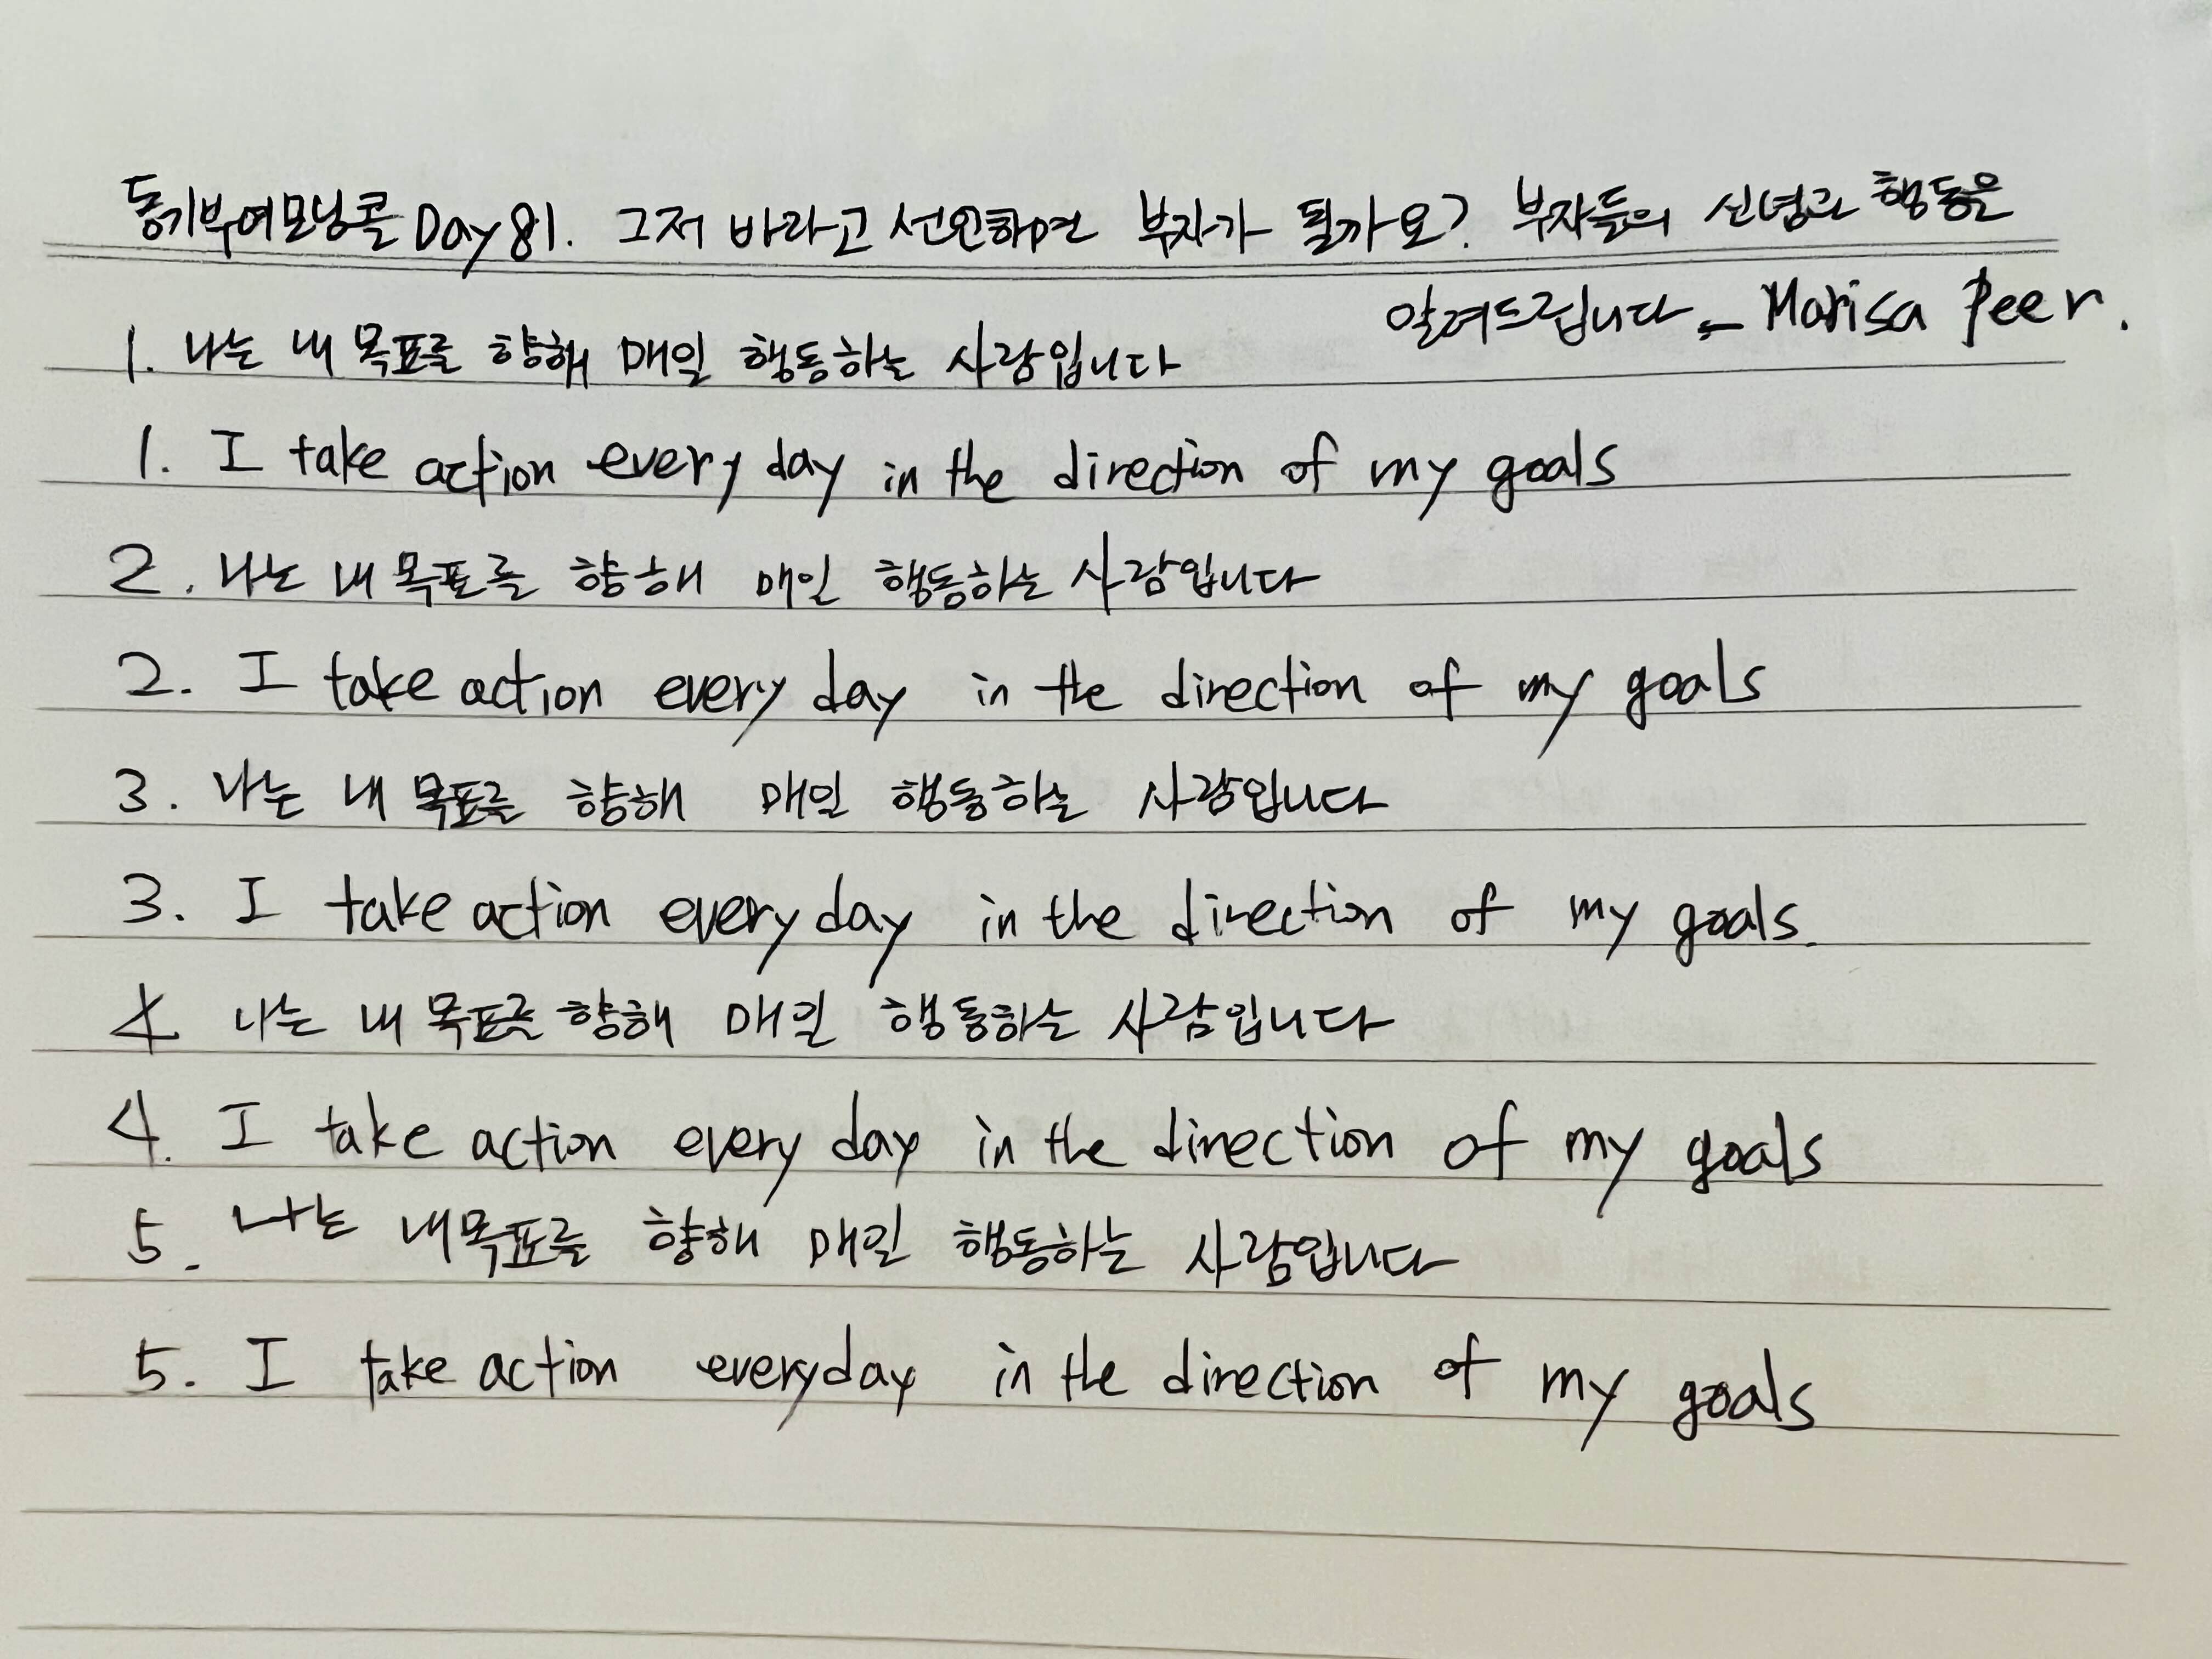 동기부여모닝콜 Day 81. 그저 바라고 선언하면 부자가 될까요? 부자들의 신념과 행동은
알려드립니다 - Marisa Peer.
1. 나는 내 목표를 향해 매일 행동하는 사람입니다
1. I take action every day in the direction of my goals
2. 나는 내 목표를 향해 매일 행동하는 사람입니다
2. I take action every day in the direction of my goals
3. 나는 내 목표를 향해 매일 행동하는 사람입니다
3. I take action every day in the direction of my goals.
4 나는 내 목표를 향해 매일 행동하는 사람입니다
4. I take action every day in the direction of my goals
5. 나는 내 목표를 향해 매일 행동하는 사람입니다
5. I take action everyday in the direction of my goals